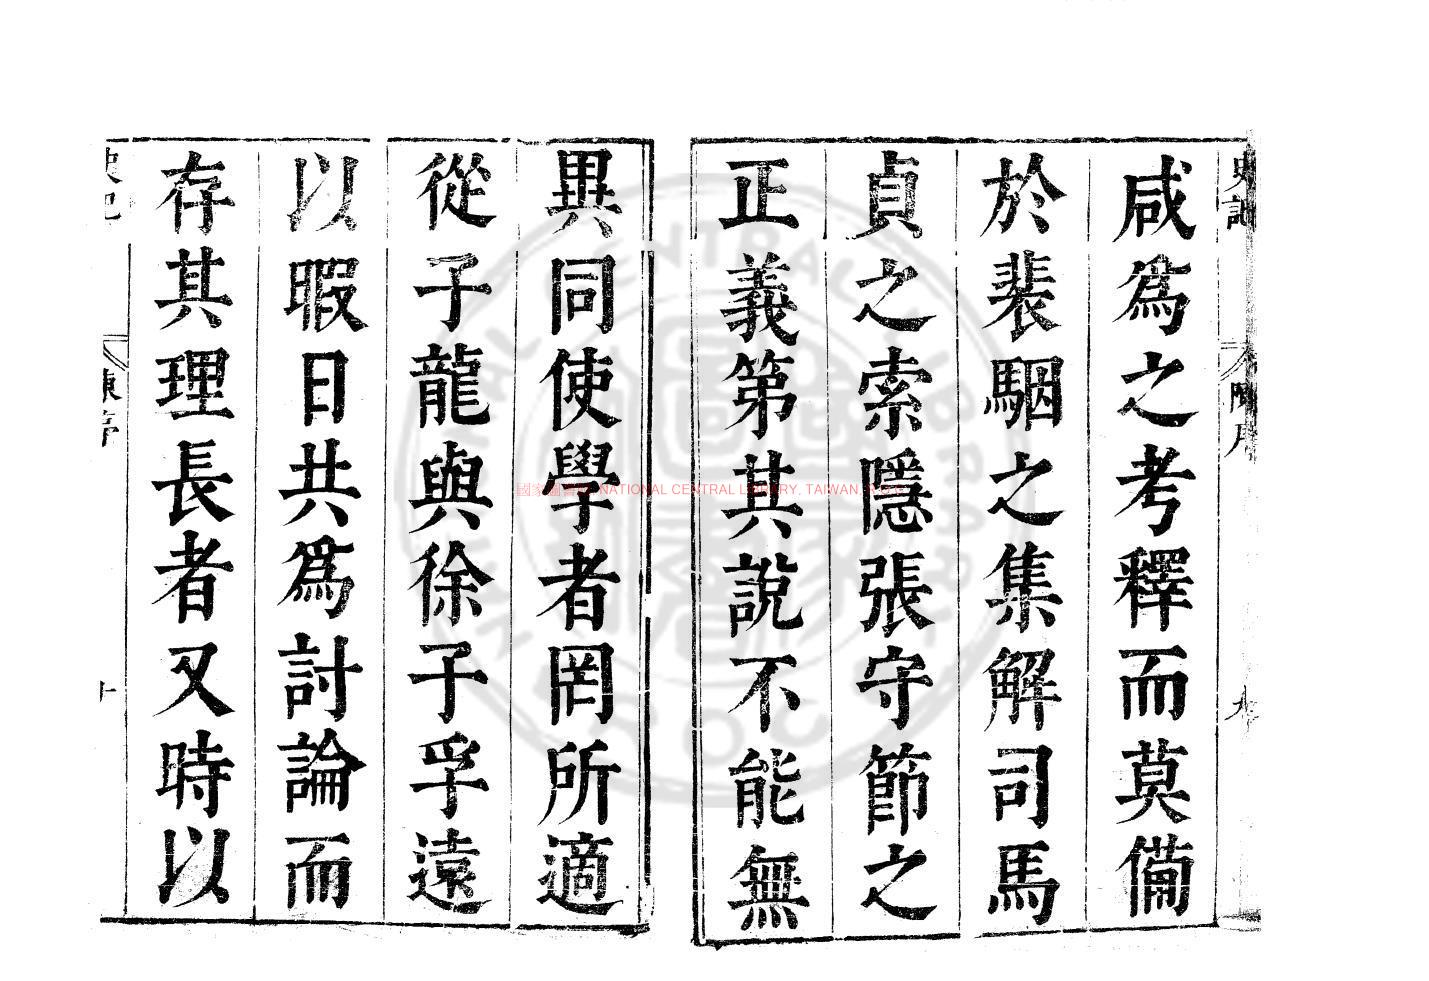 咸爲之考釋而莫備
於裴駰之集解司馬
貞之索隱張守節之
正義第其說不能無
異同使學者罔所適
從子龍與徐子孚遠
以暇日共爲討論而
存其理長者又時以
史記
陳序
十
NATIONAL CENTRAL LIBRARY, TAIWAN